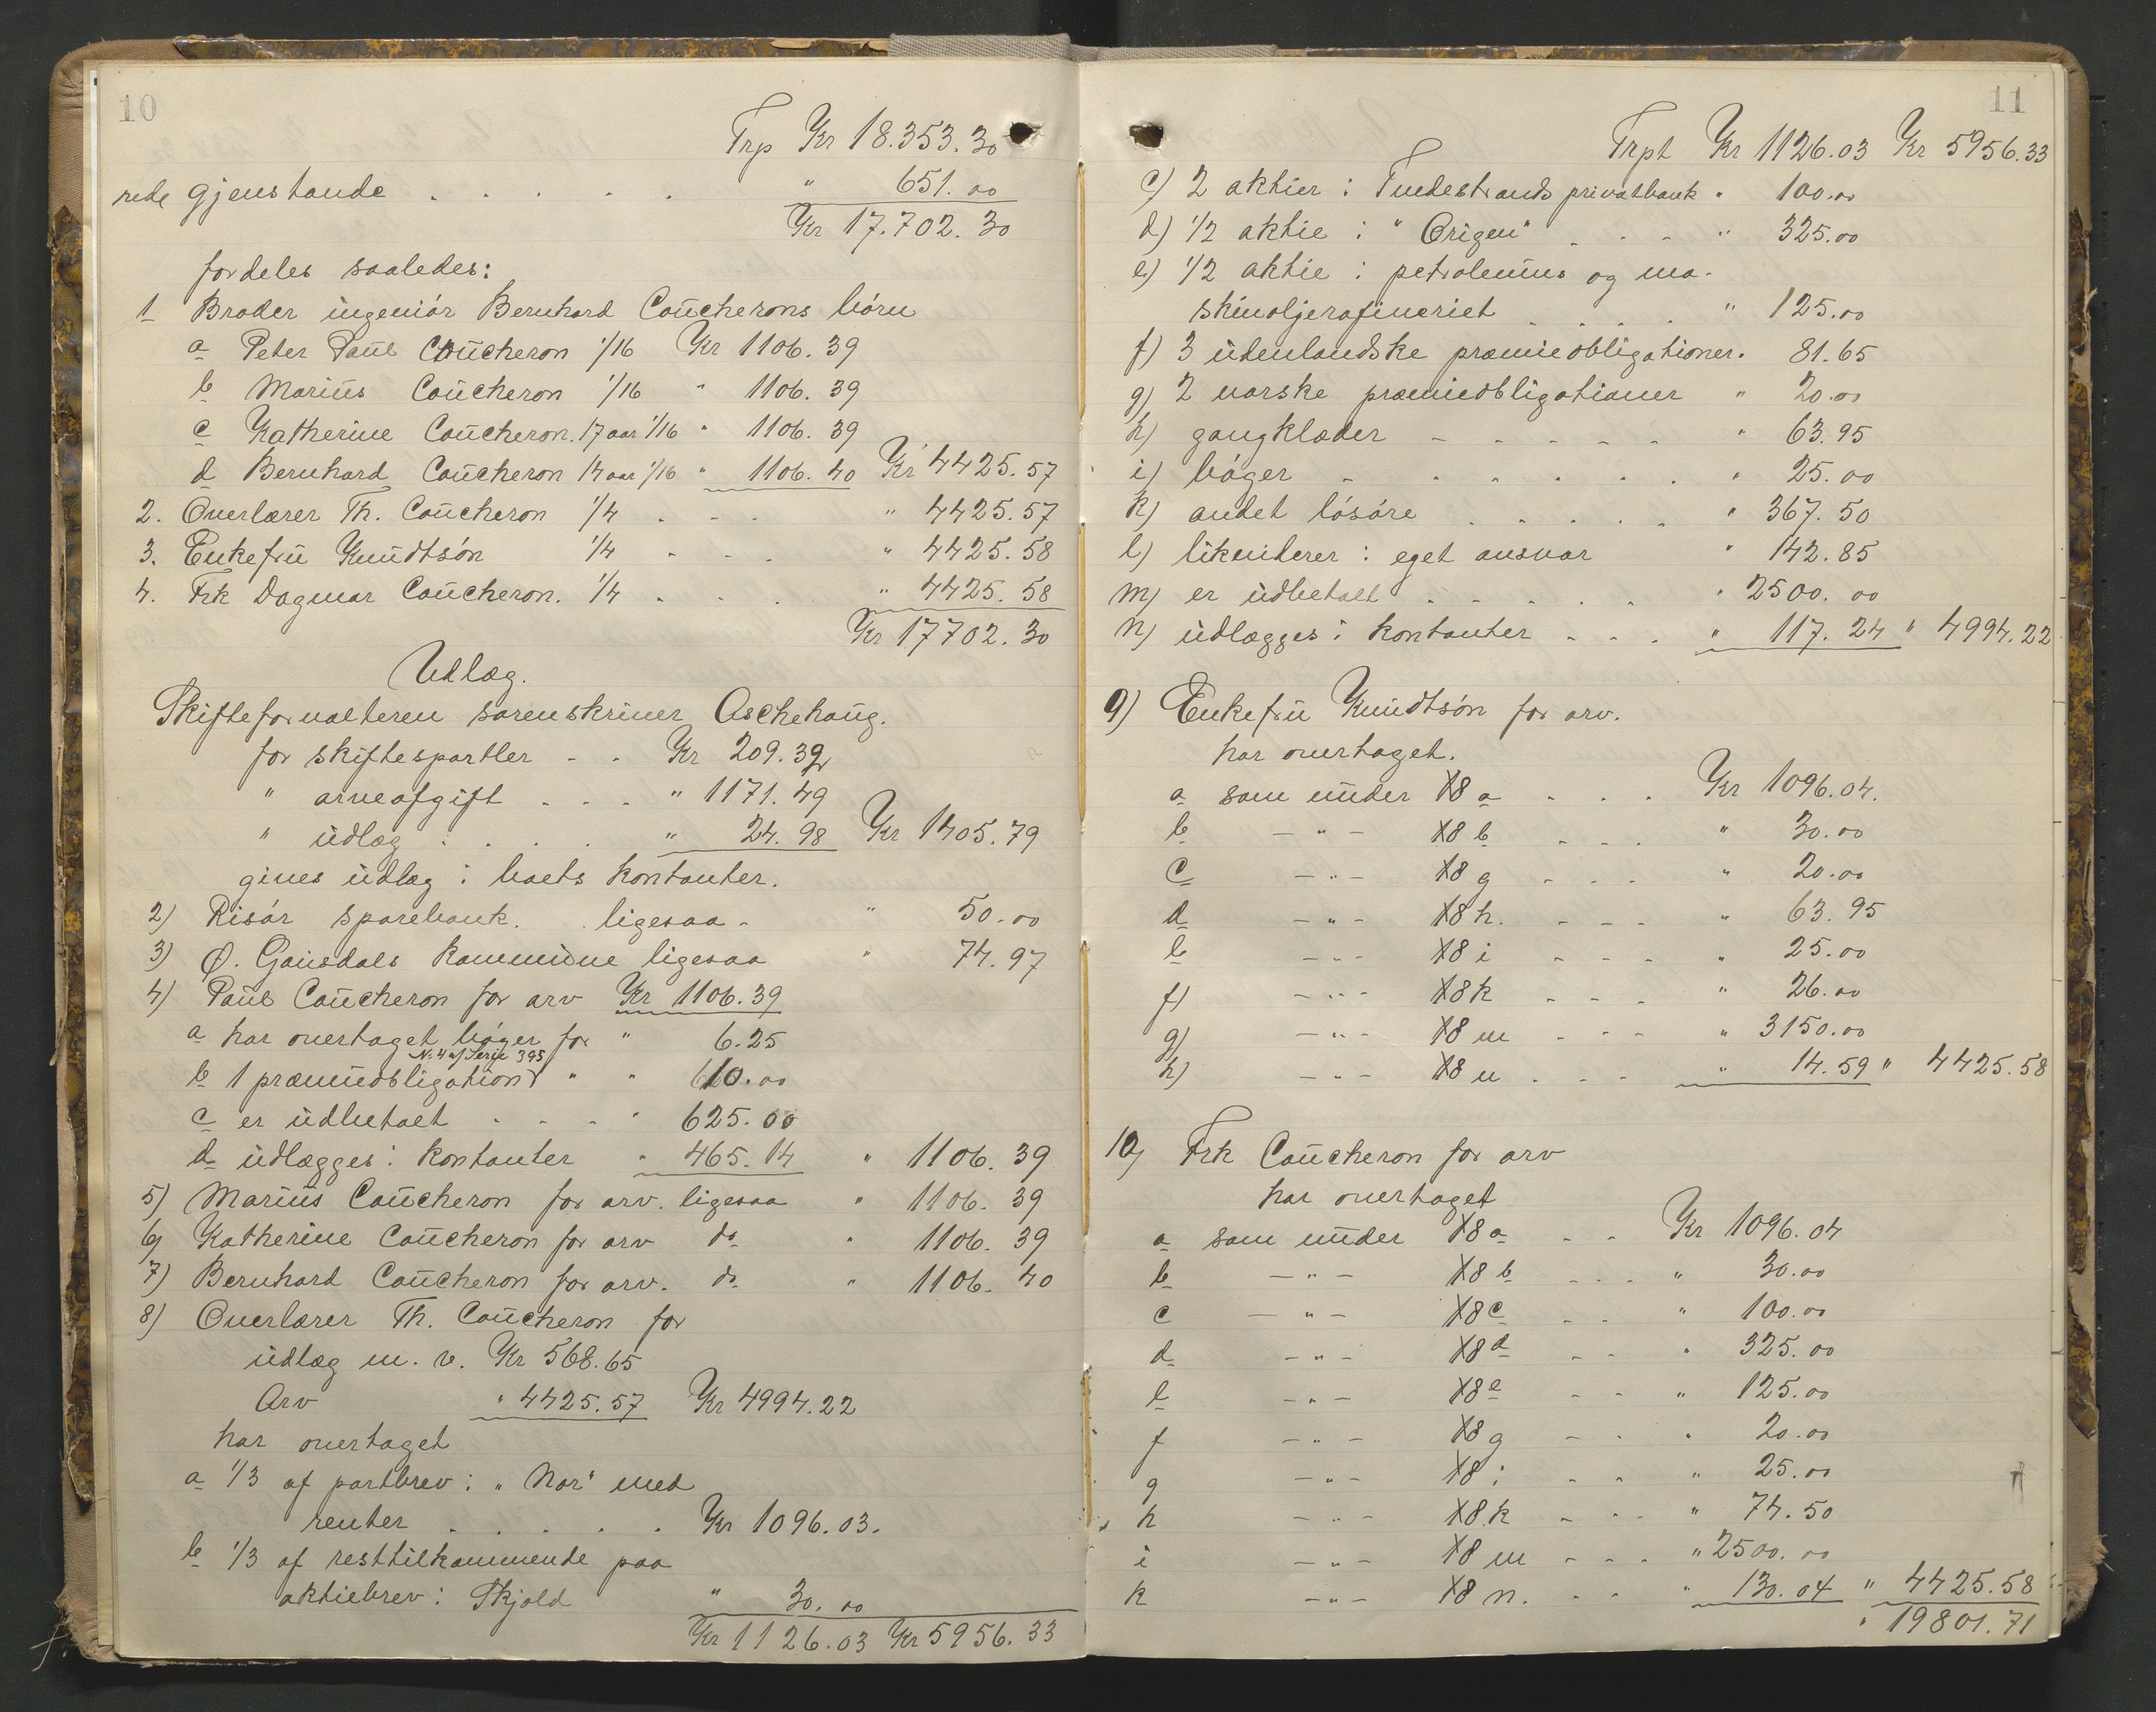 10
Trp Kr 18.353.30
rede gjenstande . . . . . " 651.00
Kr 17.702.30
fordeles saaledes:
1 Broder ingeniør Bernhard Coucherons børn
a Peter Paul Coucheron 1/16 Kr 1106.39
b Marius Coucheron 1/16 " 1106.39
c Katherine Coucheron. 17 aar 1/16 " 1106.39
d Bernhard Coucheron 14 aar 1/16 " 1106.40 Kr 4425.57
2. Overlærer Th. Coucheron 1/4 . - - " 4425.57
3. Enkefru Knudtsøn 1/4 - - . " 4425.58
4. Frk Dagmar Coucheron. 1/4 . - . " 4425.58
Kr 17702.30
Udlæg.
Skifteforvalteren sorenskriver Aschehoug.
for skiftesportler - - Kr 209.32
" arveafgift - - - " 1171.49
" udlæg . . . . " 24.98 Kr 1405.79
gives udlæg i boets kontanter.
2) Risør sparebank. ligesaa - " 50.00
3) Ø. Gausdals kommune ligesaa " 74.97
4) Paul Coucheron for arv Kr 1106.39
a har overtaget bøger for " 6.25
N. 4 af Serie 395
b 1 præmieobligation " " 10.00
c er udbetalt - - - " 625.00
d udlægges i kontanter " 465.14 " 1106.39
5) Marius Coucheron for arv. ligesaa " 1106.39
6) Katherine Coucheron for arv do " 1106.39
7) Bernhard Coucheron for arv. do " 1106.40
8) Overlærer Th. Coucheron for
udlæg m. v. Kr 568.65
Arv " 4425.57 Kr 4994.22
har overtaget
a 1/3 af partbrev i "Nor" med
renter . . . . . Kr 1096.03.
b 1/3 af resttilkommende paa
aktiebrev i Skjold " 30.00
Kr 1126.03 Kr 5956.33
11
Trpt Kr 1126.03 Kr 5956.33
c) 2 aktier i Tvedestrands privatbank " 100.00
d) 1/2 aktie i "Origen" - - - " 325.00
e) 1/2 aktie i petroleums og ma-
skinoljerafineriet . . . . " 125.00
f) 3 udenlandske præmieobligationer. 81.65
g) 2 norske præmieobligationer " 20.00
h) gangklæder - - - - - " 63.95
i) bøger - - - - - - " 25.00
k) andet løsøre . . . . . " 367.50
l) likviderer i eget ansvar " 142.85
m) er udbetalt - - - - - " 2500.00
n) udlægges i kontanter - - . " 117.24 " 4994.22
9) Enkefru Knudtsøn for arv.
har overtaget.
a som under 8 a - - . Kr 1096.04.
b - " - 8 b - - . " 30.00
c - " - 8 g - - - " 20.00
d - " - 8 h. - - - " 63.95
e - " - 8 i - - - " 25.00
f) - " - 8 k - - - " 26.00
g) - " - 8 m - - - " 3150.00
h) - " - 8 n . - - " 14.59 " 4425.58
10) Frk Coucheron for arv
har overtaget
a som under 8 a - - Kr 1096.04
b - " - 8 b - - - " 30.00
c - " - 8 c - - " 100.00
d - " - 8 d - - " 325.00
e - " - 8 e - - " 125.00
f - " - 8 g - - " 20.00
g - " - 8 i - - " 25.00
h - " - 8 k - - - " 74.50
i - " - 8 m - - - " 2500.00
k - " - 8 n. - - " 130.04 " 4425.58
" 19801.71